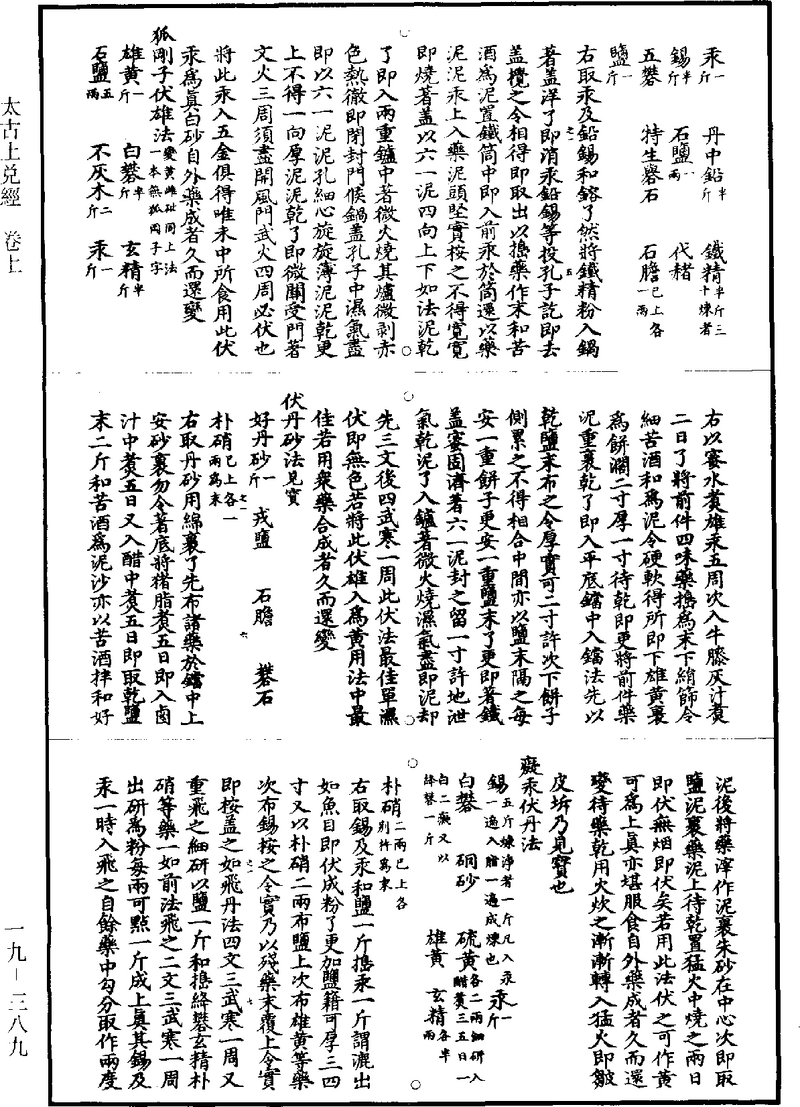 汞一斤　丹中鉛半斤　鐵精半斤三十煉者
錫半斤　石鹽一兩　代赭
五礬　特生礜石　石膽已上各一兩
鹽一斤
右取汞及鉛錫和鎔了然將鐵精粉入鍋
著蓋洋了即消汞鉛錫等投孔子訖即去
蓋攪之令相得即取出以搗藥作末和苦
酒為泥置鐵筒中即入前汞於筒還以藥
泥泥汞上入藥泥頭堅實按之不得寬寬
即燒著蓋以六一泥四向上下如法泥乾
了即入兩重鑪中著微火燒其爐微剥赤
色熱徹即閉封門候鍋蓋孔子中濕氣盡
即以六一泥泥孔細心旋旋薄泥泥乾更
上不得一向厚泥泥乾了即微開受門著
文火三周須盡開風門武火四周必伏也
將此汞入五金俱得唯未中所食用此伏
汞為真白砂自外藥成者久而還變
狐剛子伏雄法變黃雌砒同上法一本無狐岡子字
雄黃一斤　白礬半斤　玄精半斤
石鹽五兩　不灰木二斤　汞一斤
右以蜜水煑雄汞五周次入牛膝灰汁煑
二日了將前件四味藥搗為末下絹篩令
細苦酒和為泥令硬軟得所即下雄黃裹
為餅濶二寸厚一寸待乾即更將前件藥
泥重裹乾了即入平底鐺中入鐺法先以
乾鹽末布之令厚實可二寸許次下餅子
側累之不得相合中間亦以鹽末隔之每
安一重餅子更安一重鹽末了更即著鐵
蓋蜜固濟著六一泥封之留一寸許地泄
氣乾泥了入鑪著微火燒濕氣盡即泥却
先三文後四武寒一周此伏法最佳單濕
伏即無色若將此伏雄入為黃用法中最
佳若用衆藥合成者久而還變
伏丹砂法見寳
好丹砂一斤　戎鹽　石膽　礬石
朴硝已上各一兩為末
右取丹砂用綿裹了先布諸藥於鐺中上
安砂裹勿令著底將猪脂煑五日即入鹵
汁中煑五日又入醋中煑五日即取乾鹽
末二斤和苦酒為泥沙亦以苦酒拌和好
泥後將藥滓作泥裹朱砂在中心次即取
鹽泥裹藥泥上待乾置猛火中燒之兩日
即伏無烟即伏矣若用此法伏之可作黃
可為上真亦堪服食自外藥成者久而還
變待藥乾用火炊之漸漸轉入猛火即皺
皮坼乃見寳也
癡汞伏丹法
錫五斤煉浄者一斤凡入汞一遍入腊一遍成煉也　汞一斤
白礬　硇砂　硫黃各二兩細研入醋煑三五日一
白二癡又以絳礬一斤　雄黃　玄精各半兩
朴硝二兩已上各別件為末
右取錫及汞和鹽一斤搗汞一斤謂漉出
如魚目即伏成粉了更加鹽籍可厚三四
寸又以朴硝二兩布鹽上次布雄黃等藥
次布錫按之令實乃以殘藥末覆上令實
即按蓋之如飛丹法四文三武寒一周又
重飛之細研以鹽一斤和搗絳礬玄精朴
硝等藥一如前法飛之二文三武寒一周
出研為粉每兩可點一斤成上真其錫及
汞一時入飛之自餘藥中勾分取作兩度
太古土兌經　卷上
一九—三八九